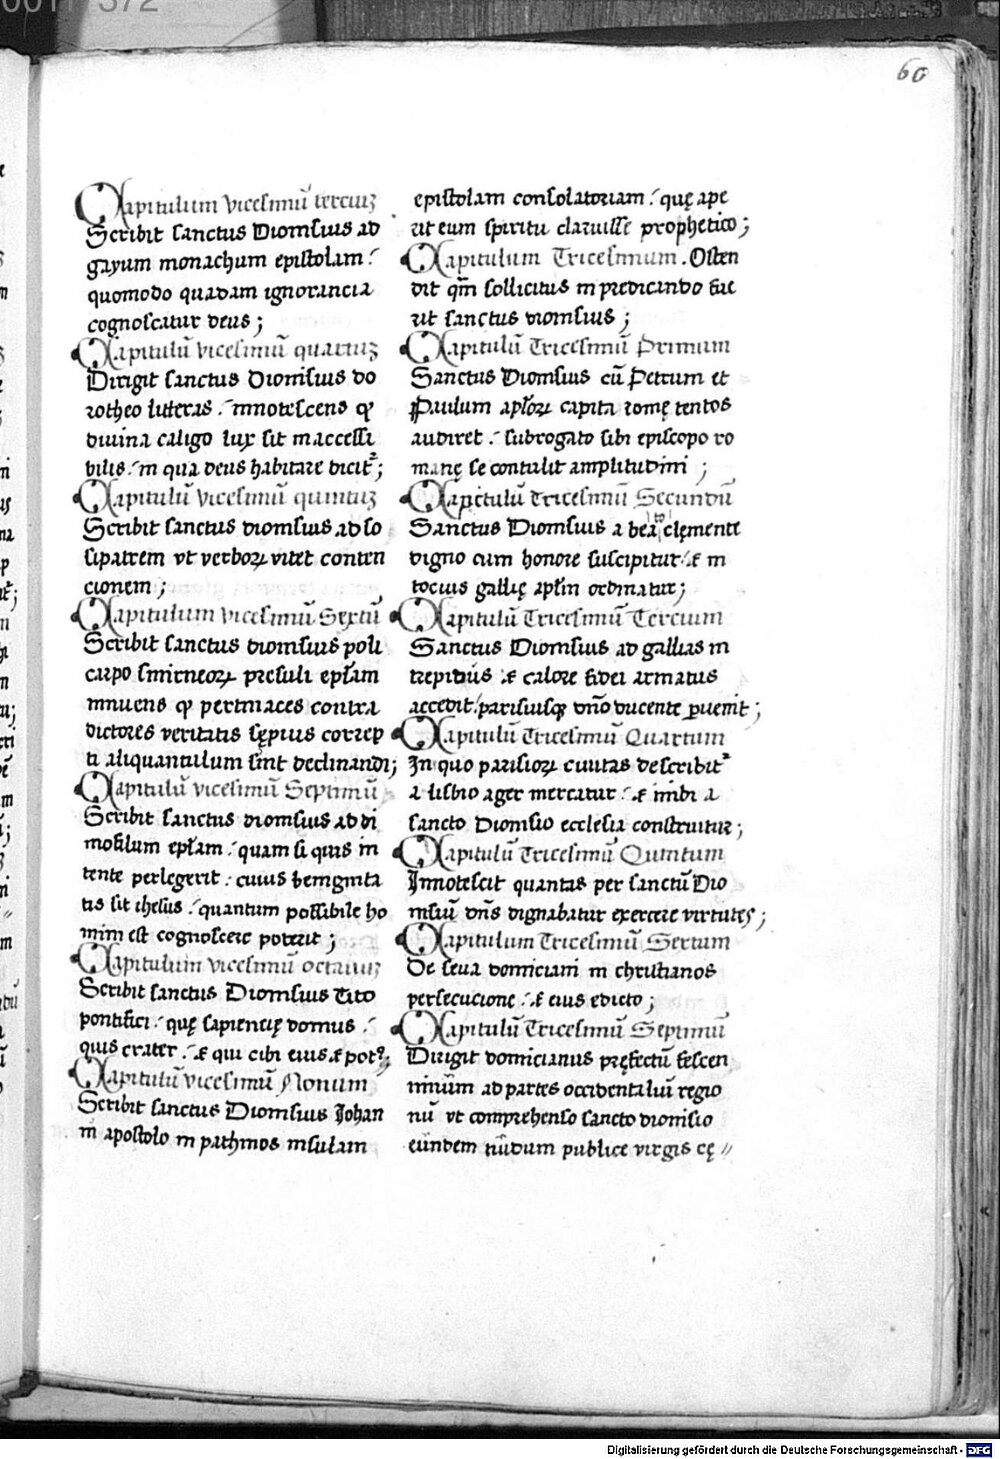 60
Capitulum vicesimũ terciuʒ
Scribit sanctus Dionisius ad
gayum monachum epistolam :
quomodo quadam ignorancia
cognoscatur deus ;
Capitulũ vicesimũ quartuʒ
Dirigit sanctus Dionisius do
rotheo litteras . innotescens ꝙ
diuina caligo lux sit inaccessi
bilis . in qua deus habitare dicit᷑ ;
Capitulũ vicesimũ quintuʒ
Scribit sanctus dionisius ad so
sipatrem vt verboꝝ vitet conten
cionem ;
Capitulum vicesimũ Sextũ
Scribit sanctus dionisius poli
carpo smirneoꝝ presuli ep̃lam
innuens ꝙ pertinaces contra
dictores veritatis sępius correp
ti aliquantulum sint declinandi ;
Capitulũ vicesimũ Septimũ
Scribit sanctus dionisius ad di
mofilum ep̃lam : quam si quis in
tente perlegerit : cuius benignita
tis sit ihesus . quantum possibile ho
mini est cognoscere poterit ;
Capitulum vicesimũ octauuʒ
Scribit sanctus Dionisius Tito
pontifici . quę sapiencię domus .
quis crater . & qui cibi eius & pot᷑ ;
Capitulũ vicesimũ Nonum
Scribit sanctus Dionisius Johan
ni apostolo in pathmos insulam
epistolam consolatoriam . quę ape
rit eum spiritu claruisse prophetico ;
Capitulum Tricesimum . Osten
dit qm̃ sollicitus in predicando fue
rit sanctus dionisius ;
Capitulũ Tricesimũ Primum
Sanctus Dionisius cũ Petrum et
Paulum ap̃loꝝ capita romę tentos
audiret . subrogato sibi episcopo ro
manę se contulit amplitudini ;
Capitulum Tricesimũ Secundũ
Sanctus Dionisius a beato clemente
digno cum honore suscipitur . & in
tocius gallię ap̃lm ordinatur ;
Capitulũ Tricesimũ Tercium
Sanctus Dionisius ad gallias in
trepidus & calore fidei armatus
accedit . parisiusqꝫ dño ducente ꝑuenit ;
Capitulũ Tricesimũ Quartum
In quo parisioꝝ ciuitas describit᷑
a lisbio ager mercatur . & inibi a
sancto Dionisio ecclesia construitur ;
Capitulũ Tricesimũ Quintum
Innotescit quantas per sanctũ Dio
nisiũ dñs dignabatur exercere virtutes ;
Capitulum Tricesimũ Sextum
De seua domiciani in christianos
persecucione . & eius edicto ;
Capitulũ Tricesimũ Septimũ
Dirigit domicianus pręfectũ fescen
ninũm ad partes occidentaliũ regio
nũ vt comprehenso sancto dionisio
eũndem nũdum publice virgis cę //
Digitalisierung gefördert durch die Deutsche Forschungsgemeinschaft - DFG